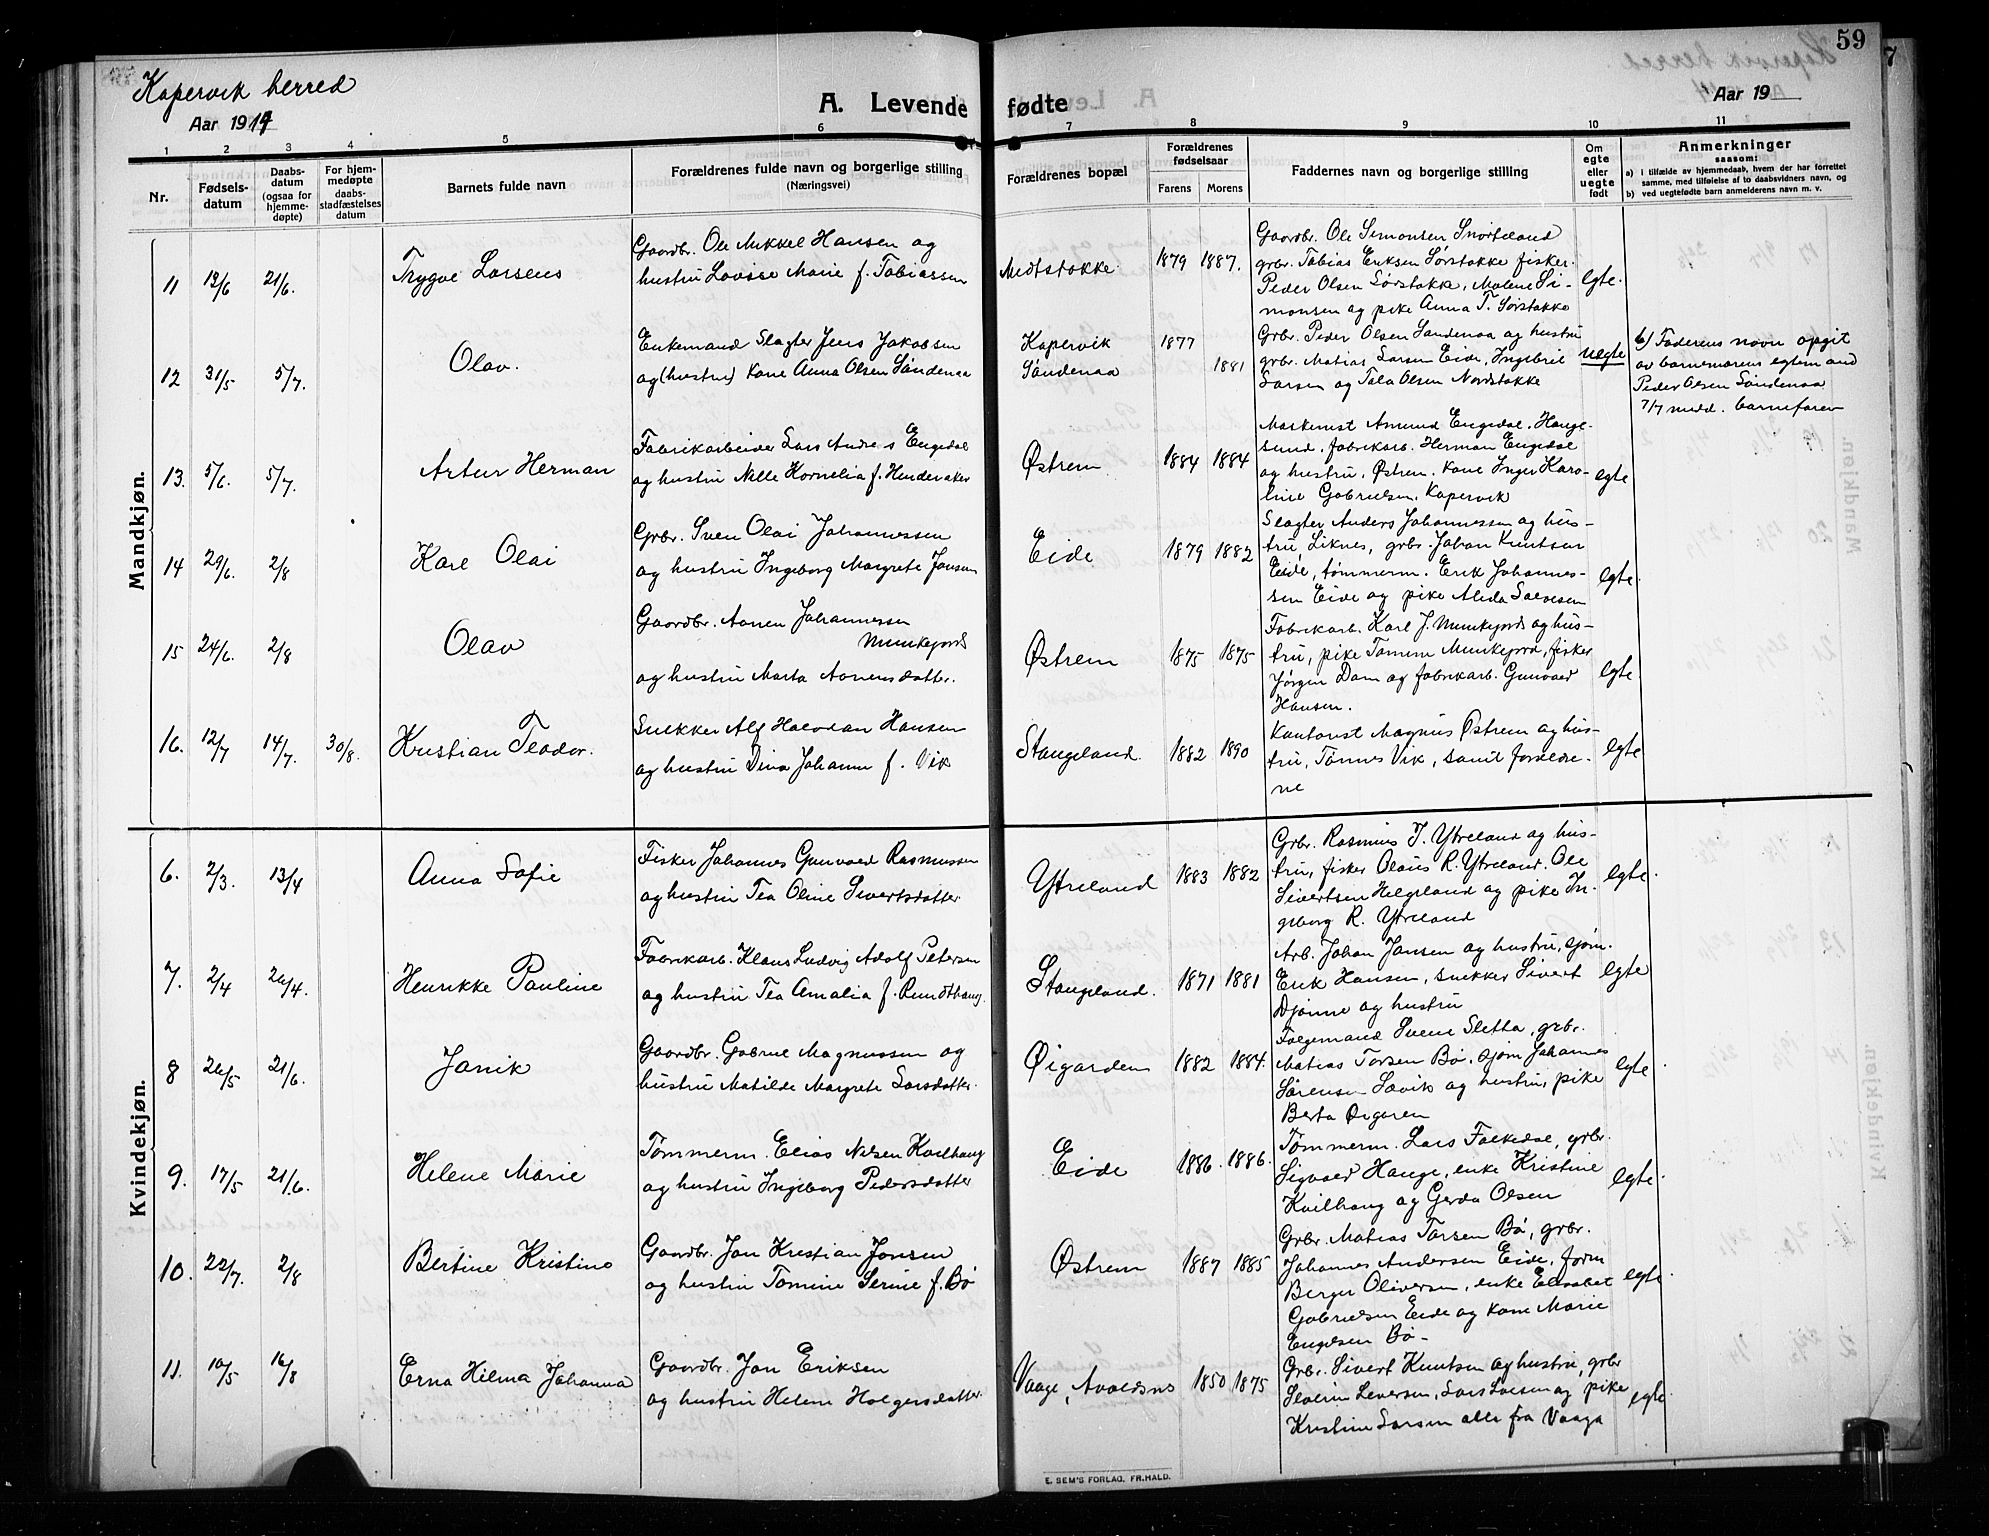 59
Kopervik herred
Aar 1914
A. Levende fødte
Aar 19
1 2 3 4 5 6 7 8 9 10 11
Nr.
Fødsels-
datum
Daabs-
datum
(ogsaa for
hjemme-
døpte)
For hjem-
medøpte
daabs-
stadfæstelses
datum
Barnets fulde navn
Forældrenes fulde navn og borgerlige stilling
(Næringsvei)
Forældrenes bopæl
Forældrenes
fødselsaar
Farens Morens
Faddernes navn og borgerlige stilling
Om
egte
eller
uegte
født
Anmerkninger
saasom:
a) i tilfælde av hjemmedaab, hvem der har forrettet
samme, med tilføielse af to daabsvidners navn, og
b) ved uegtefødte barn anmelderens navn m. v.
Mandkjøn.
11 13/6 21/6. Trygve Lorsens
Gaardbr. Ole Mikkel Hansen og
hustru Lovise Marie f. Tobiassen
Midtstokke 1879 1887.
Gaardbr. Ole Simonsen Snorteland
grbr. Tobias Eriksen Sørstokke fisker
Peder Olsen Sørstokke, Malene Si-
monsen og pike Anna T. Sørstokke
egte.
12 31/5 5/7. Olav.
Enkemand Slagter Jens Jakobsen
og (hustru) kone Anna Olsen Søndenaa
Kopervik 1877
Søndenaa 1881
Grbr. Peder Olsen Søndenaa og hustru
grbr. Matias Larsen Eide, Ingebril
Larsen og Tala Olsen Nordstokke
uegte
b/ Faderens navn opgit
av barnemorens egtemand
Peder Olsen Søndenaa
7/7 medd. barnefaren
13. 5/6. 5/7. Artur Herman
Fabrikarbeider Lars Andreas Engedal
og hustru Nille Kornelia f. Hinderaker
Østrem 1884 1884
Maskinist Amund Engedal, Hauge-
sund, fabrikarb. Herman Engedal
og hustru, Østrem. kone Inger Karo-
line Gabrielsen, Kopervik
egte
14 29/6. 2/8 Karl Olai
Grbr. Sven Olai Johannessen
og hustru Ingeborg Margrete Jonsen
Eide 1879 1882
Slagter Anders Johannessen og hus-
tru, Liknes, grbr. Johan Knutsen
Eide, tømmerm. Erik Johannes-
sen Eide og pike Alida Salvesen
egte.
15 24/6. 2/8 Olav
Gaardbr. Aanen Johannessen
Munkejord
og hustru Marta Aanensdatter.
Østrem 1875 1875
Fabrikarb. Karl J. Munkejord og hus-
tru, pike Tomine Munkejord, fisker
Jørgen Dam og fabrikarb. Gunvald
Hansen.
egte.
16. 12/7 14/7. 30/8. Kristian Teodor.
Snekker Alf Halvdan Hansen
og hustru Dina Johanne f. Vik
Stangeland. 1882 1890
Kontorist Magnus Østrem og hus-
tru, Tønnes Vik, samt foreldre-
ne
egte
Kvindekjøn.
6. 2/3. 13/4 Anna Sofie
Fisker Johannes Gunvald Rasmussen
og hustru Tea Oline Sivertsdatter
Ytreland 1883 1882
Grbr. Rasmus J. Ytreland og hus-
tru, fisker Olaus R. Ytreland. Ole
Sivertsen Helgeland og pike In-
geborg R. Ytreland
egte.
7. 2/4 26/4. Henrikke Pauline
Fabrikarb. Klaus Ludvig Adolf Petersen
og hustru Tea Amalia f. Rundthaug.
Stangeland. 1871 1881
Arb. Johan Jansen og hustru, sjøm.
Erik Hansen, snekker Sivert
Djønne og hustru
egte
8 26/5 21/6. Janik
Gaardbr. Gabriel Magnussen og
hustru Matilde Margrete Larsdatter.
Øigarden 1882 1884.
Følgemand Svend Sletta, grbr.
Matias Torsen Bø, sjøm Johannes
Sørensen Sævik og hustru, pike
Berta Øigaren
egte
9. 17/5 21/6. Helene Marie
Tømmerm. Elias Nilsen Kvilhaug
og hustru Ingeborg Pedersdatter
Eide 1886. 1886.
Tømmerm. Lars Falkedal, grbr.
Sigvald Hauge, enke Kristine
Kvilhaug og Gerda Olsen
egte.
10. 22/7. 2/8 Bertine Kristine
Gaardbr. Jon Kristian Jonsen
og hustru Tomine Serine f. Bø
Østrem 1887 1885
Grbr. Matias Torsen Bø, grbr.
Johannes Andersen Eide, form
Berger Oliversen, enke Elisabet
Gabrielsen Eide og kone Marie
Engelsen Bø.
egte.
11. 10/5 16/8 Erna Hilma Johanna
Gaardbr. Jon Eriksen
og hustru Helene Holgersdatter.
Vaage, Avaldsnes 1850 1875
Grbr. Sivert Knutsen og hustru, grbr
Severin Seversen, Lars Larsen og pike
Kristine Larsen alle fra Vaaga
egte
E. SEM'S FORLAG, FR.HALD.